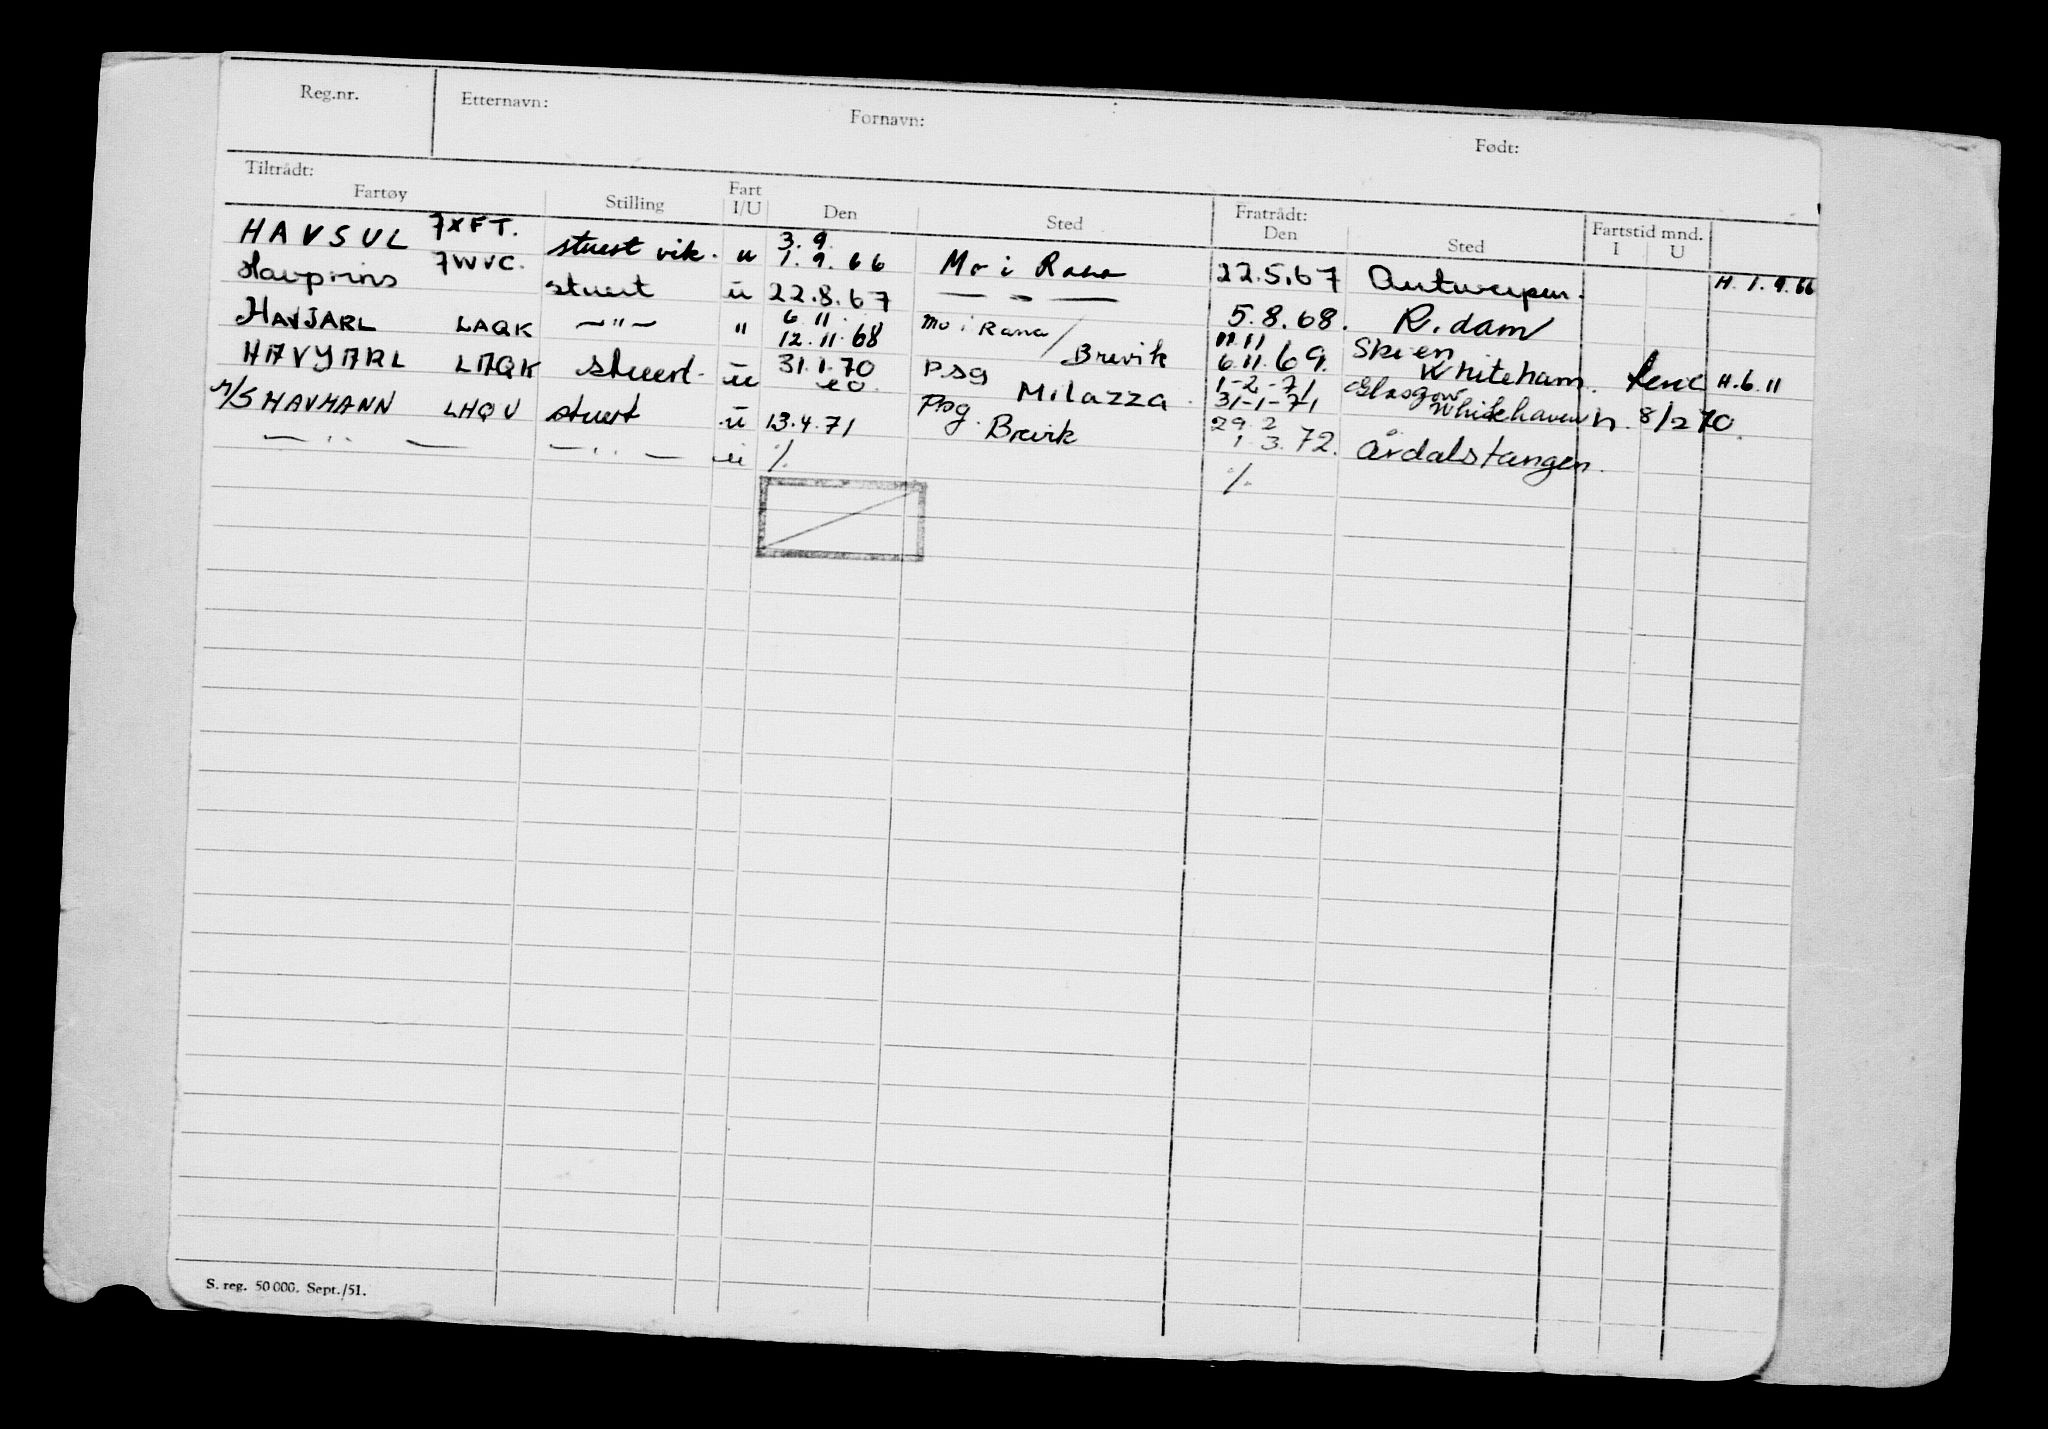 Reg.nr. Etternavn: Fornavn: Født:
Tiltrådt: Fratrådt:
Fartøy Stilling Fart I/U Den Sted Den Sted Fartstid mnd. I U
HAVSUL 7XFT. stuert vik. u 3.9. 1.9.66 Mo i Rana 22.5.67 Antwerpen. H. 1.9.66
Havprins 7WVC. stuert u 22.8.67 — " — 5.8.68. R.dam
HAVJARL LAQK —"— " 6.11. 12.11.68 Mo i Rana / Brevik 11.11 6.11.69. Skien Whiteham. H.6.11
HAVJARL LAQK stuert. u 31.1.70 psg Milazza. 1-2-71 31-1-71 Glasgow Whitehaven h. 8/2 70.
M/S HAVMANN LHQV stuert u 13.4.71 Psg. Brevik 29.2 1.3.72. Årdalstangen.
— " — — " — u %. %.
S. reg. 50 000. Sept./51.